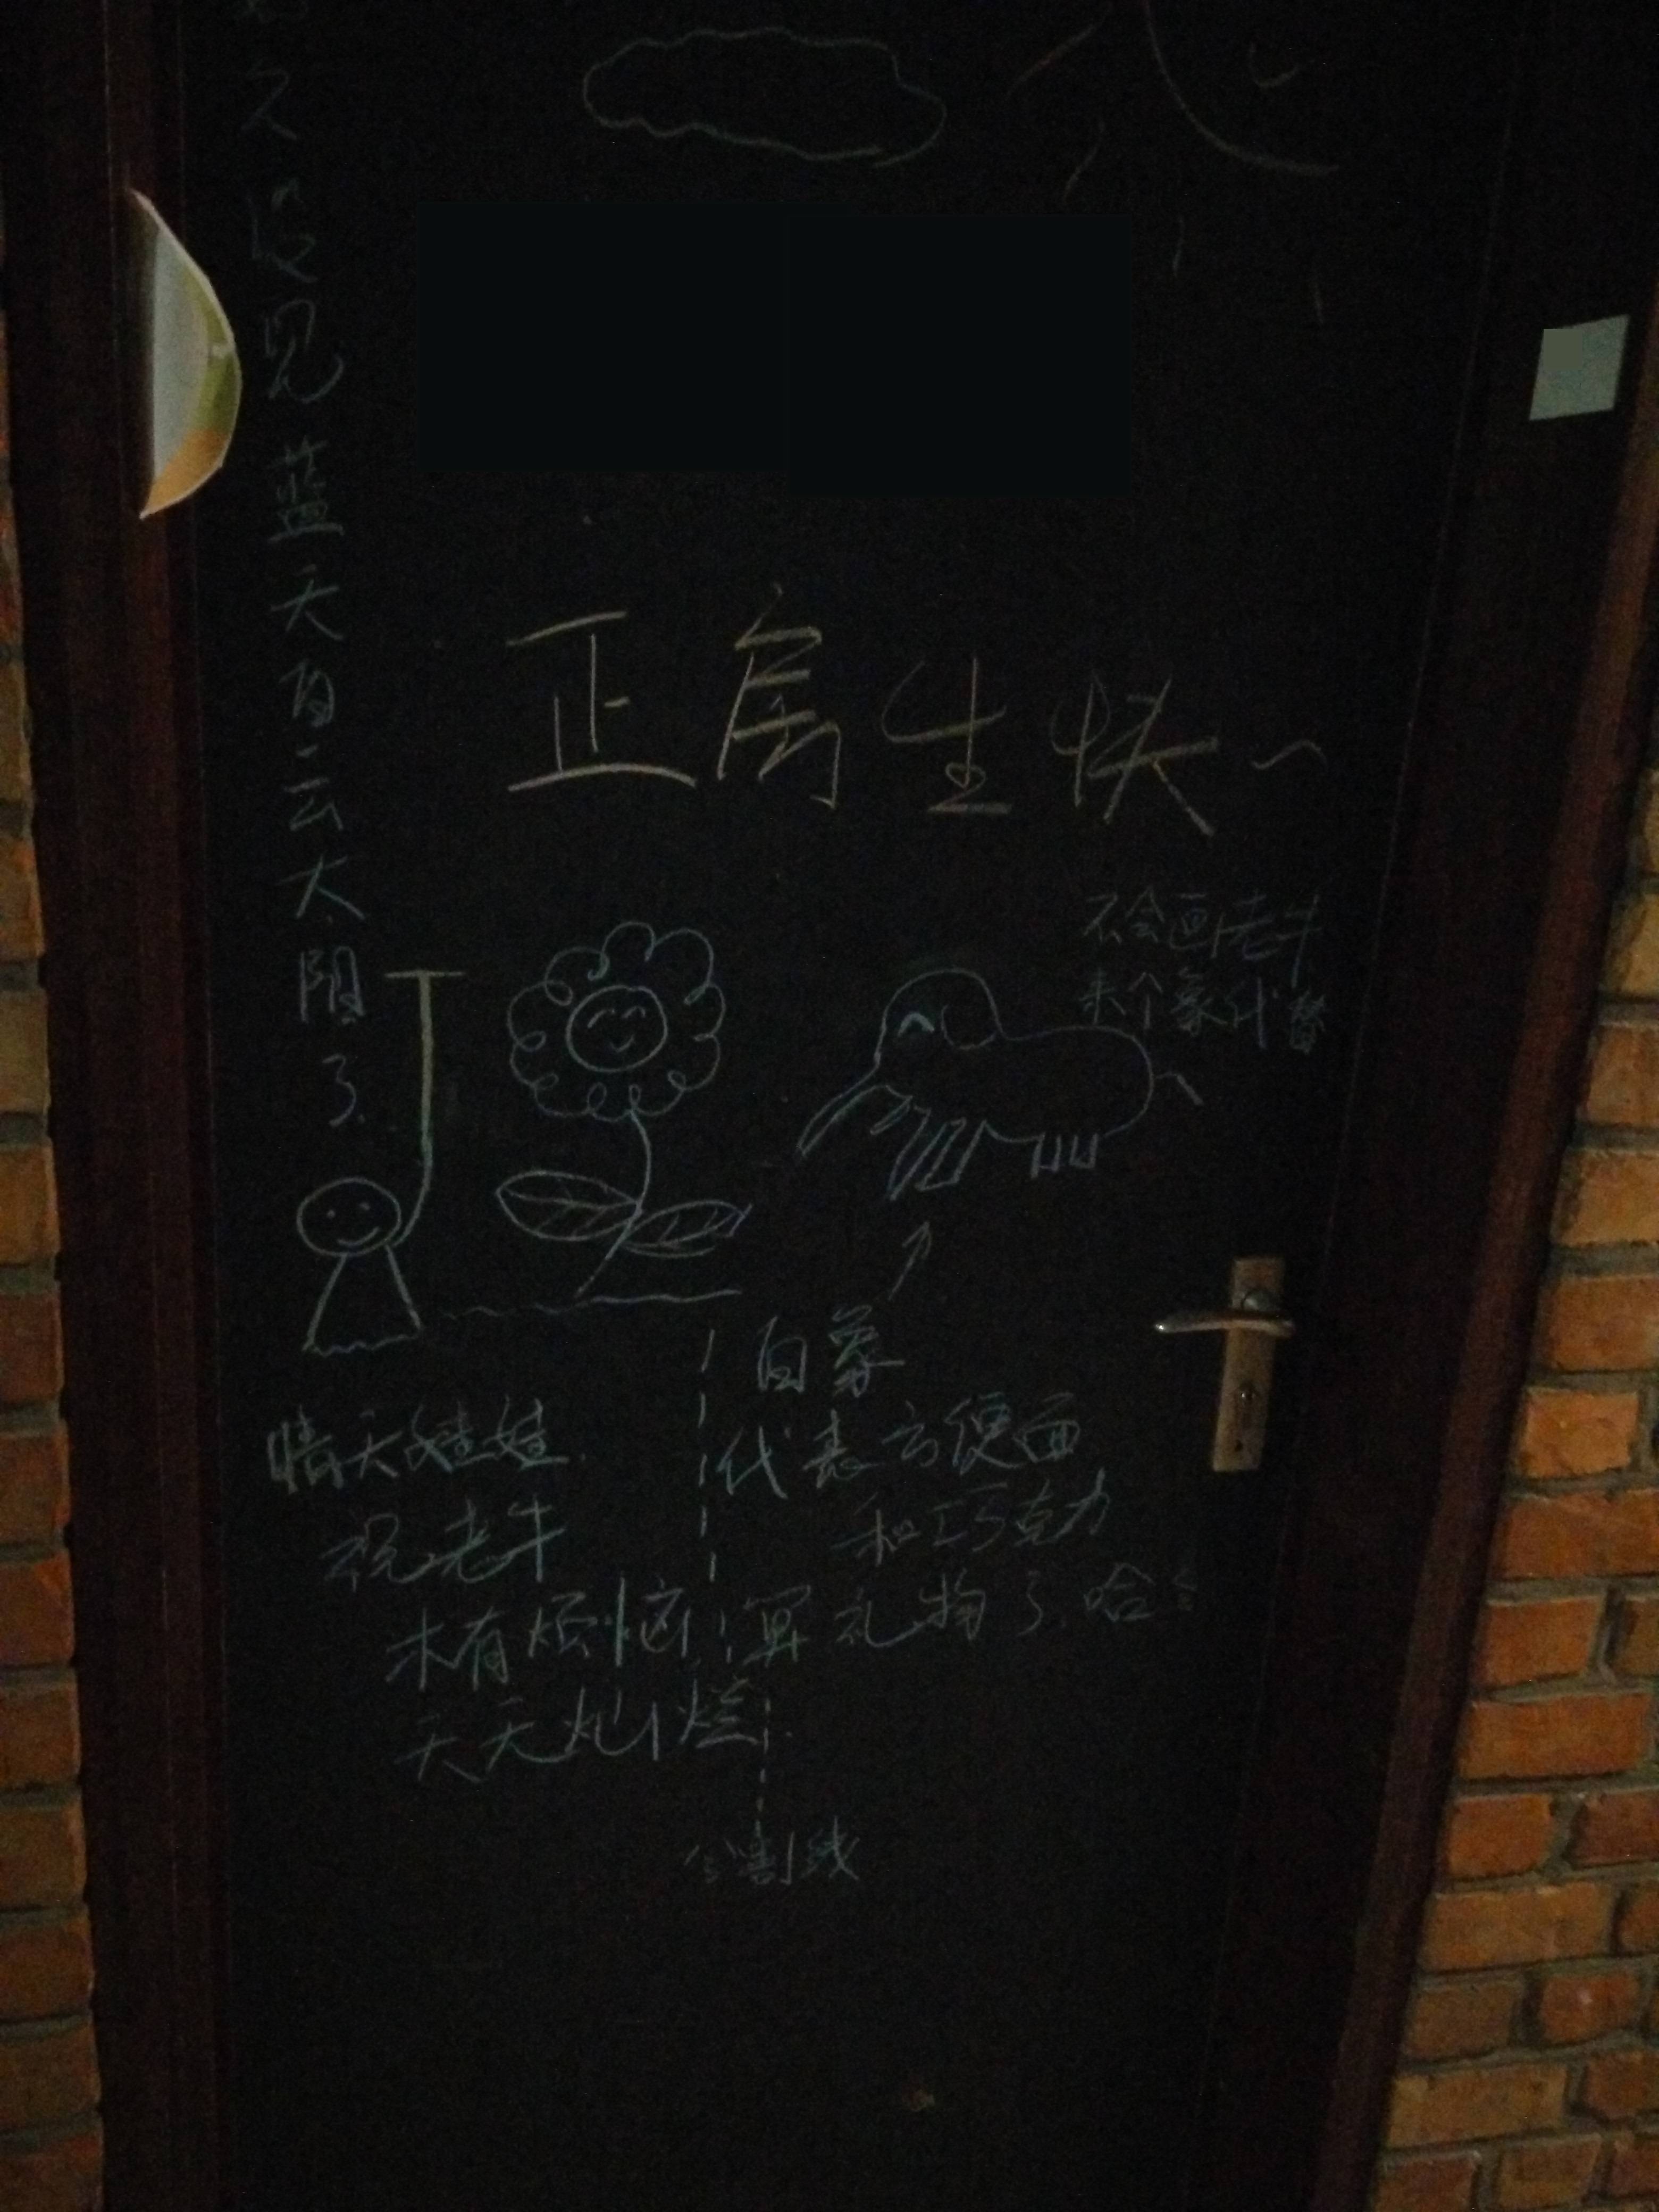 久没见蓝天白云太阳了
正房生快~
不会画老牛
来个象代替
白象
代表方便面
和巧克力
算礼物了.哈
晴天娃娃.
祝老牛
木有烦恼
天天灿烂
分割线